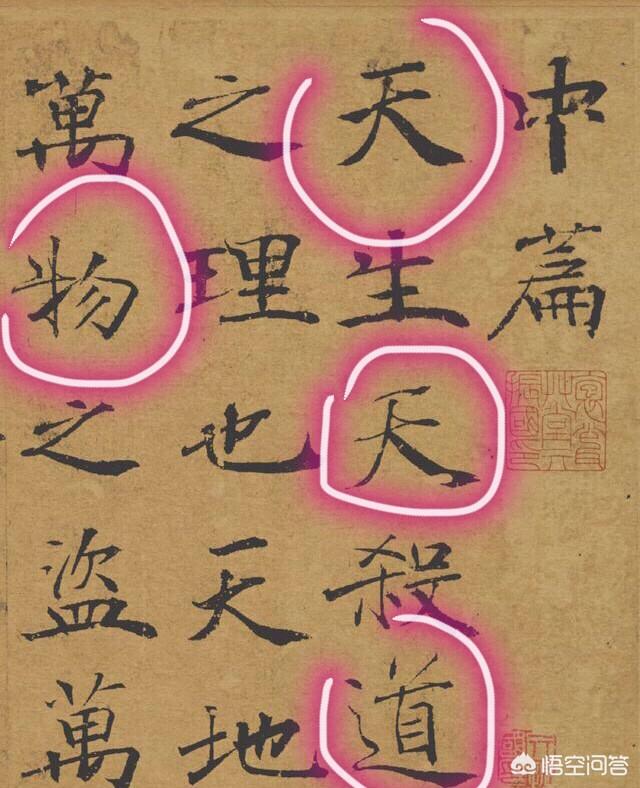 中篇
天生天殺道
之理也天地
萬物之盜萬
悟空问答